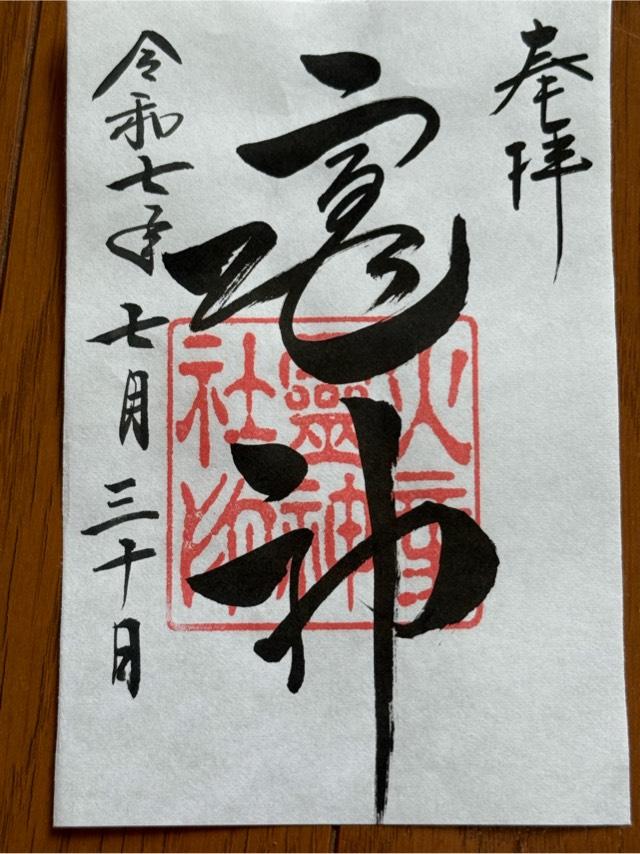 奉拝
神
火産靈神社印
令和七年七月三十日